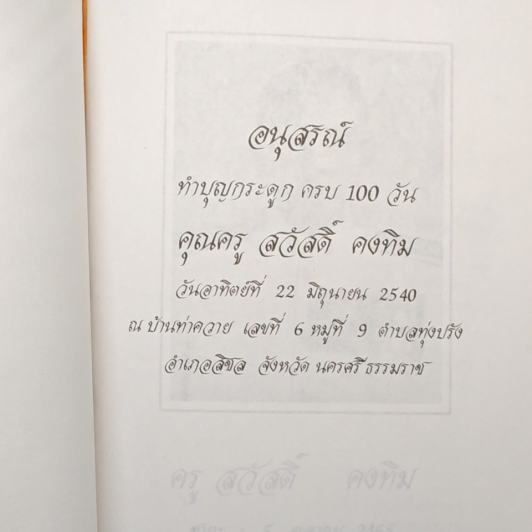 อนุสรณ์
ทำบุญกระดูก ครบ 100 วัน
คุณครู สวัสดิ์ คงทิม
วันอาทิตย์ที่ 22 มิถุนายน 2540
ณ บ้านท่าควาย เลขที่ 6 หมู่ที่ 9 ตำบลทุ่งปรัง
อำเภอสิชล จังหวัด นครศรีธรรมราช
ครู สวัสดิ์ คงทิม